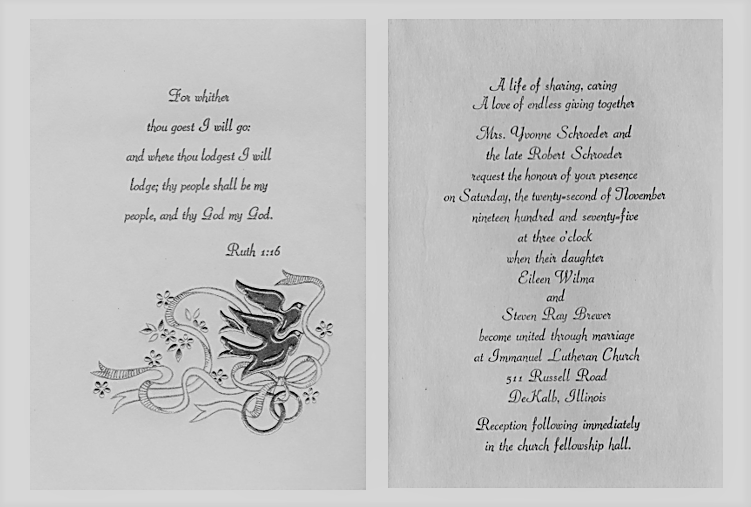 For whither
thou goest I will go:
and where thou lodgest I will
lodge; thy people shall be my
people, and thy God my God.
Ruth 1:16
A life of sharing, caring
A love of endless giving together
Mrs. Yvonne Schroeder and
the late Robert Schroeder
request the honour of your presence
on Saturday, the twenty-second of November
nineteen hundred and seventy-five
at three o'clock
when their daughter
Eileen Wilma
and
Steven Ray Brewer
become united through marriage
at Immanuel Lutheran Church
511 Russell Road
DeKalb, Illinois
Reception following immediately
in the church fellowship hall.